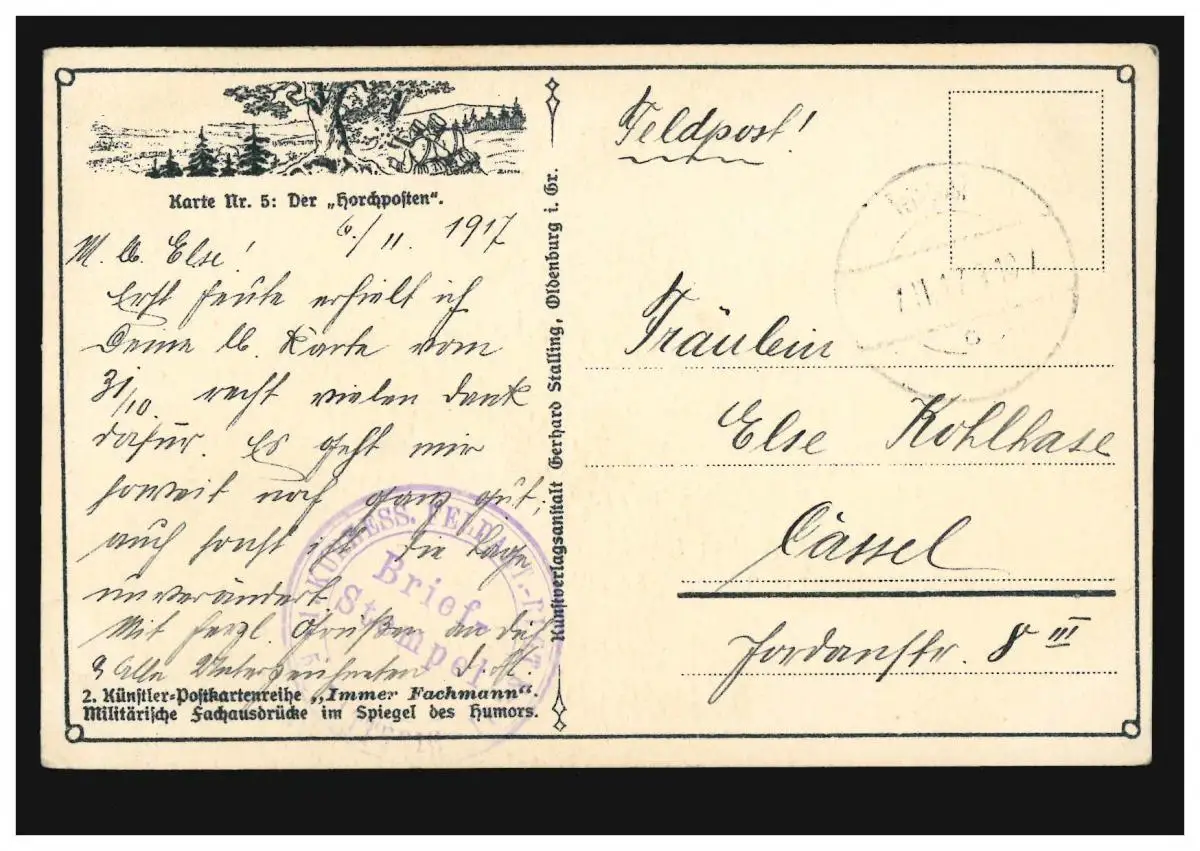 Karte Nr. 5: Der „Horchposten“.
6./11. 1917
M. lb. Else!
Erst heute erhielt ich
Deine lb. Karte vom
31/10. recht vielen Dank
dafür. Es geht mir
soweit noch ganz gut;
auch sonst ist die Lage
unverändert
Mit herzl. Grüßen an dich
& Alle Unterzeichneten
2. Künstler-Postkartenreihe „Immer Fachmann“.
Militärische Fachausdrücke im Spiegel des Humors.
KURHESS. FELDART.
Brief-
Stempel
Kunstverlagsanstalt Gerhard Stalling, Oldenburg i. Gr.
Feldpost!
Fräulein
Else Kohlhase
Cassel
Jordanstr. 8 III